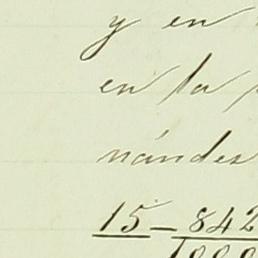 y en
en la
nández
15 - 842